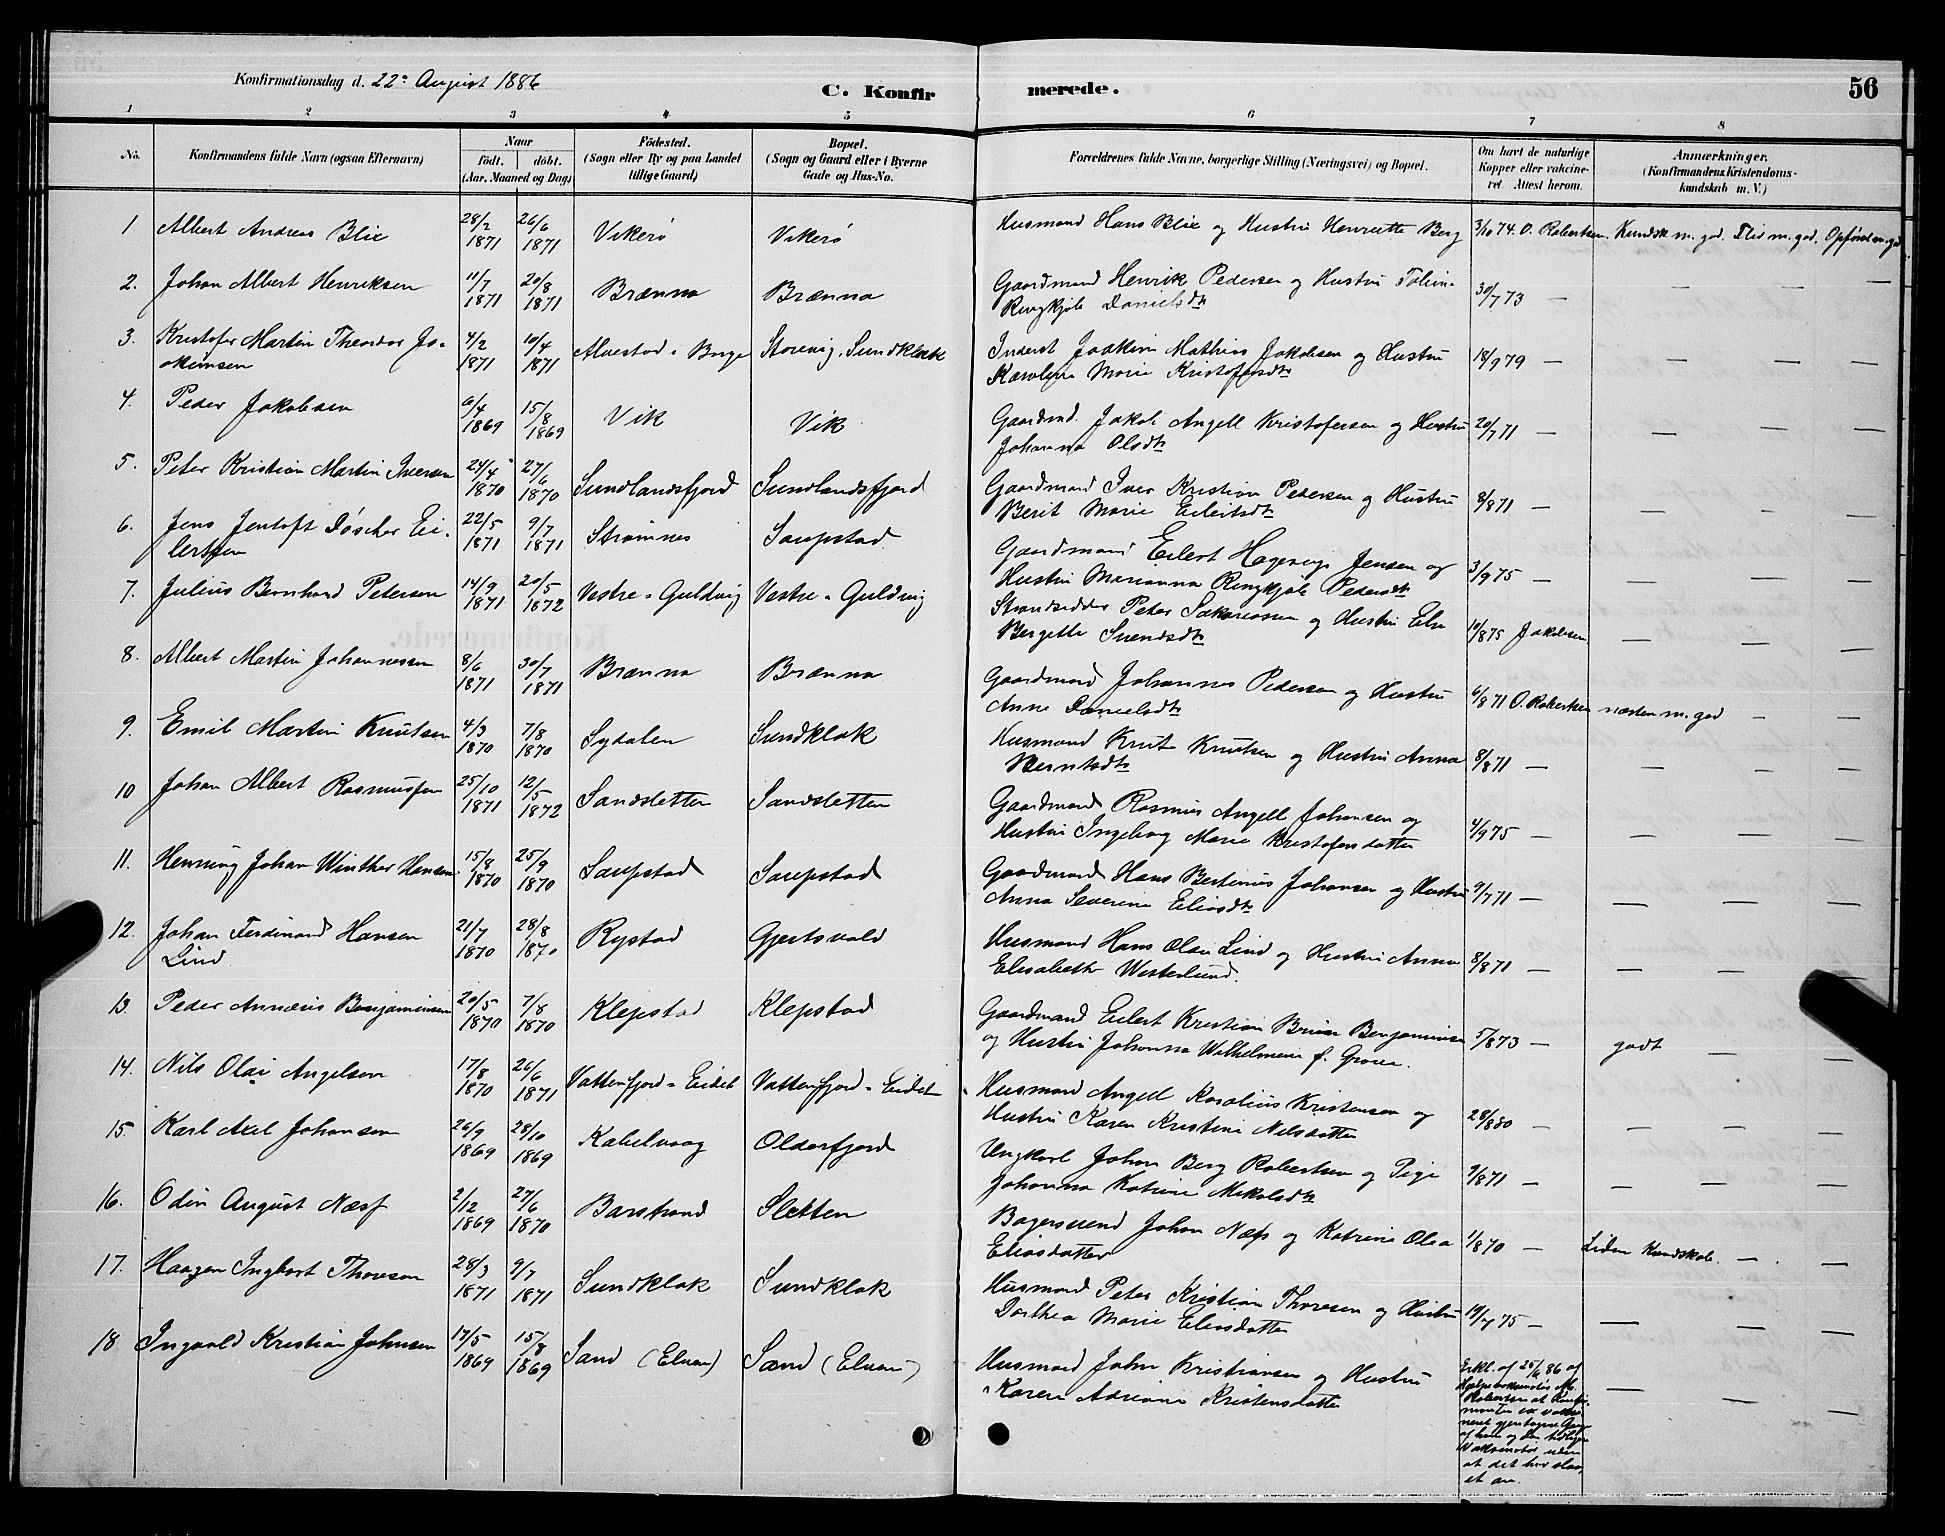 Konfirmationsdag d. 22de August 1886
C. Konfirmerede.
56
1 2 3 4 5 6 7 8
No. Konfirmandens fulde Navn (ogsaa Efternavn) Naar født. døbt. (Aar, Maaned og Dag) Fødested. (Sogn eller By og paa Landet tillige Gaard) Bopæl. (Sogn og Gaard eller i Byerne Gade og Hus-No. Forældrenes fulde Navne, borgerlige Stilling (Næringsvei) og Bopæl. Om havt de naturlige Kopper eller vakcineret. Attest herom. Anmærkninger. (Konfirmandens Kristendomskundskab m. V.)
1 Albert Andreas Blix 28/2 1871 26/6 1871 Vikerø Vikerø Husmand Hans Blix og Hustru Henriette Berg 3/10 74. O. Robertsen. Kundsk m. god. Flid m. god. Opførsel m. god
2. Johan Albert Henriksen 11/7 1871 20/8 1871 Brænna Brænna Gaardmand Henrik Pedersen og Hustru
Ringkjøb Danielsdtr 30/7 73 — — — —
3. Kristofer Martin Theodor Jo-
akimsen 4/2 1871 10/4 1871 Alvestad i Borge Storevig, Sundklak Inderst Joakim Mathias Jakobsen og Hustru
Karoline Marie Kristofersdtr 18/9 79 — — — —
4. Peder Jakobsen 6/4 1869 15/8 1869 Vik Vik Gaardmd. Jakob Angell Kristofersen og Hustru
Johanna Olsdtr 20/7 71 — — — —
5. Peter Kristian Martin Iversen 24/4 1870 27/6 1870 Sundlandsfjord Sundlandsfjord Gaardmand Iver Kristian Pedersen og Hustru
Berit Marie Eilertsdtr 8/8 71 — — — —
6. Jens Jentoft Døscher Ei-
lertsen 22/5 1871 9/7 1871 Strømnes Saupstad Gaardmand Eilert Hagerup Jensen og
Hustru Marianna Ringkjøb Pedersdtr 3/9 75 — — — —
7. Julius Bernhard Petersen 14/9 1871 20/5 1872 Vestre-Guldvig Vestre-Guldvig Strandsidder Peter Sakariassen og Hustru Elen
Bergitte Svendsdtr 10/8 75 Jakobsen — — —
8. Albert Martin Johannessen 8/6 1871 30/7 1871 Brænna Brænna Gaardmand Johannes Pedersen og Hustru
Anne Danielsdtr 6/8 71 O. Robertsen næsten m. god — —
9. Emil Martin Knutsen 4/3 1870 7/8 1870 Sydalen Sundklak Husmand Knut Knutsen og Hustru Anna
Berntsdtr 8/8 71 — — — —
10 Johan Albert Rasmussen 25/10 1871 12/5 1872 Sandsletten Sandsletten Gaardmand Rasmus Angell Johansen og
Hustru Ingeborg Marie Kristofersdatter 4/9 75 — — — —
11. Henning Johan Winther Hansen 15/8 1870 25/9 1870 Saupstad Saupstad Gaardmand Hans Bertinius Johansen og Hustru
Anna Severine Eliasdtr 9/7 71 — — — —
12. Johan Ferdinand Hansen
Lind 21/7 1870 28/8 1870 Rystad Gjertsvold Husmand Hans Olai Lind og Hustru Anna
Elisabeth Westerlund. 8/8 71 — — — —
13. Peder Annæus Benjaminsen 20/5 1870 7/8 1870 Klepstad Klepstad Gaardmand Eilert Kristian Benjaminsen
og Hustru Johanna Wilhelmine f. 5/8 73 — godt — —
14. Nils Olai Angelsen 17/8 1870 26/6 1871 Vattenfjord-Eidet Vattenfjord-Eidet Husmand Angell Korelius Kristensen og
Hustru Karen Kristine Nilsdatter 28/8 80 — — —
15. Karl Axel Johansen 26/9 1869 28/10 1869 Kabelvaag Olderfjord Ungkarl Johan Berg Robertsen og Pige
Johanna Katrine Mikalsdtr 9/8 71 — — — —
16. Odin August Næss 2/12 1869 27/6 1870 Barstrand Sletten Bagersvend Johan Næss og Katrine Olea
Eliasdatter 1/8 70 — Liden Kundskab. — —
17. Haagen Ingbart Thoresen 28/3 1871 9/7 1871 Sundklak Sundklak Husmand Peter Kristian Thoresen og Hustru
Dorthea Marie Eliasdatter 19/7 75 — — — —
18 Ingvald Kristian Johnsen 17/5 1869 15/8 1869 Sand (Elvan) Sand (Elvan) Husmand John Kristiansen og Hustru
Karen Adriane Kristensdatter Erkl. af 25/6 86 af
Robertsen at Konfir-
manden er vakci-
neret gjentagne Gange
af ham og den tidligere
Vakcinatør uden
at det har slaa-
et an. — — —